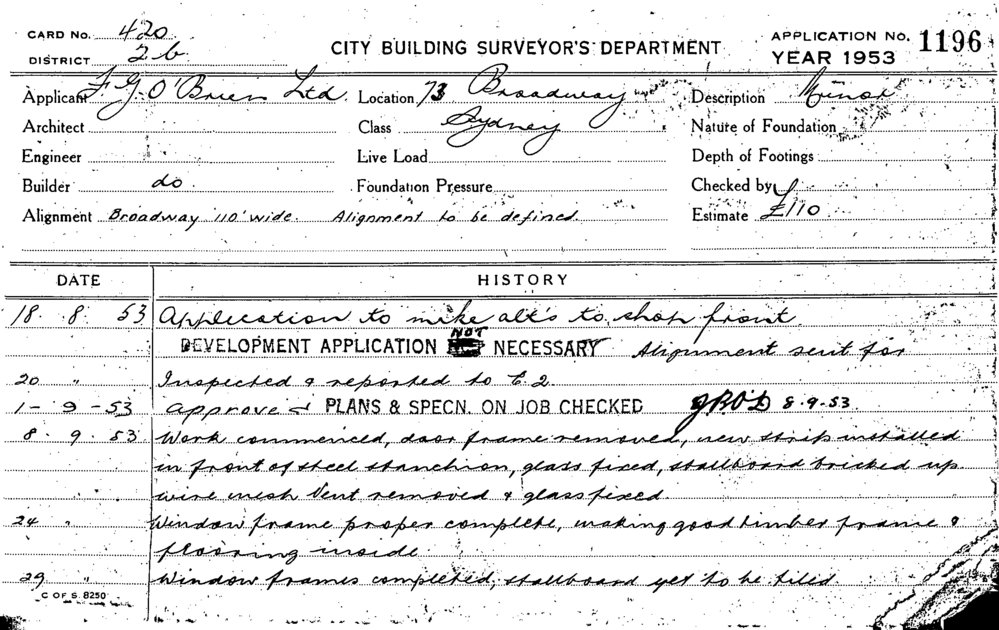 CARD No. 420
DISTRICT 2b
CITY BUILDING SURVEYOR'S DEPARTMENT
APPLICATION No. 1196
YEAR 1953
Applicant F. G. O'Brien Ltd. Location 73 Broadway Description Minor
Architect Class Sydney Nature of Foundation
Engineer Live Load Depth of Footings
Builder do Foundation Pressure Checked by
Alignment Broadway 110' wide. Alignment to be defined. Estimate £110
DATE HISTORY
18. 8. 53 Application to make alt's to shop front
DEVELOPMENT APPLICATION NOT NECESSARY Alignment sent for
20 " Inspected & reported to C.2
1-9-53 Approve PLANS & SPECN. ON JOB CHECKED 8.9.53
8. 9. 53 Work commenced, door frame removed, new strip installed
in front of steel stanchion, glass fixed, stallboard bricked up
wire mesh vent removed & glass fixed
24 " Window frame proper complete, making good timber frame &
flooring inside
29 " Window frames completed, stallboard yet to be tiled
C OF S. 8250